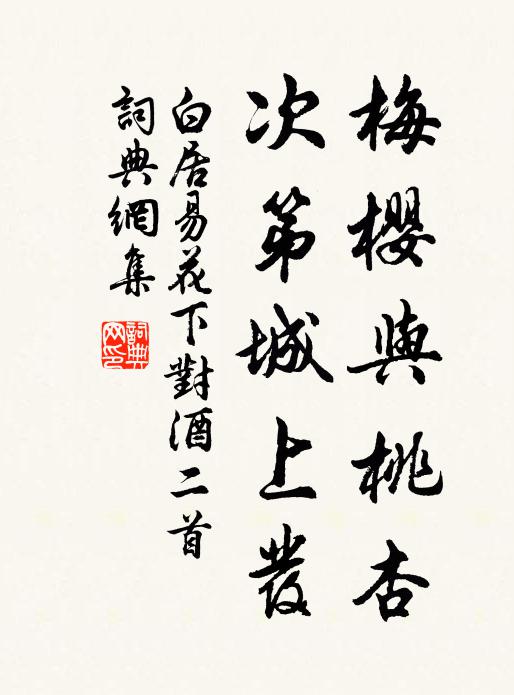 梅櫻與桃杏
次第城上發
白居易花下對酒二首
詞典網集
詞典網印